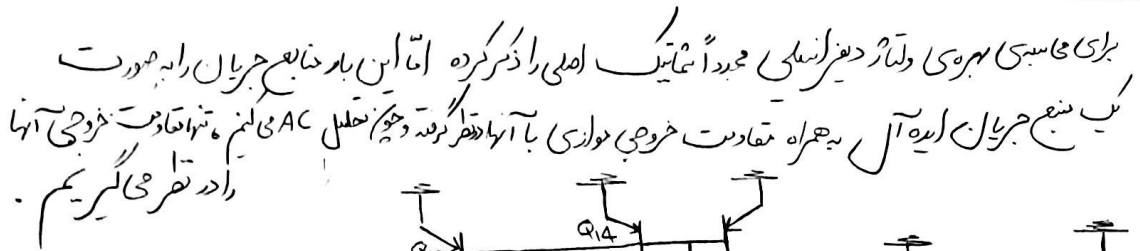 برای محاسبه‌ی بهره‌ی ولتاژ دیفرانسیلی مجدداً شماتیک اصلی را ذکر کرده امّا این بار منابع جریان را به صورت
یک منبع جریان ایده آل به همراه مقاومت خروجی موازی با آنها در نظر گرفته و چون تحلیل AC می کنیم ، تنها مقاومت خروجی آنها
را در نظر می گیریم .
Q14